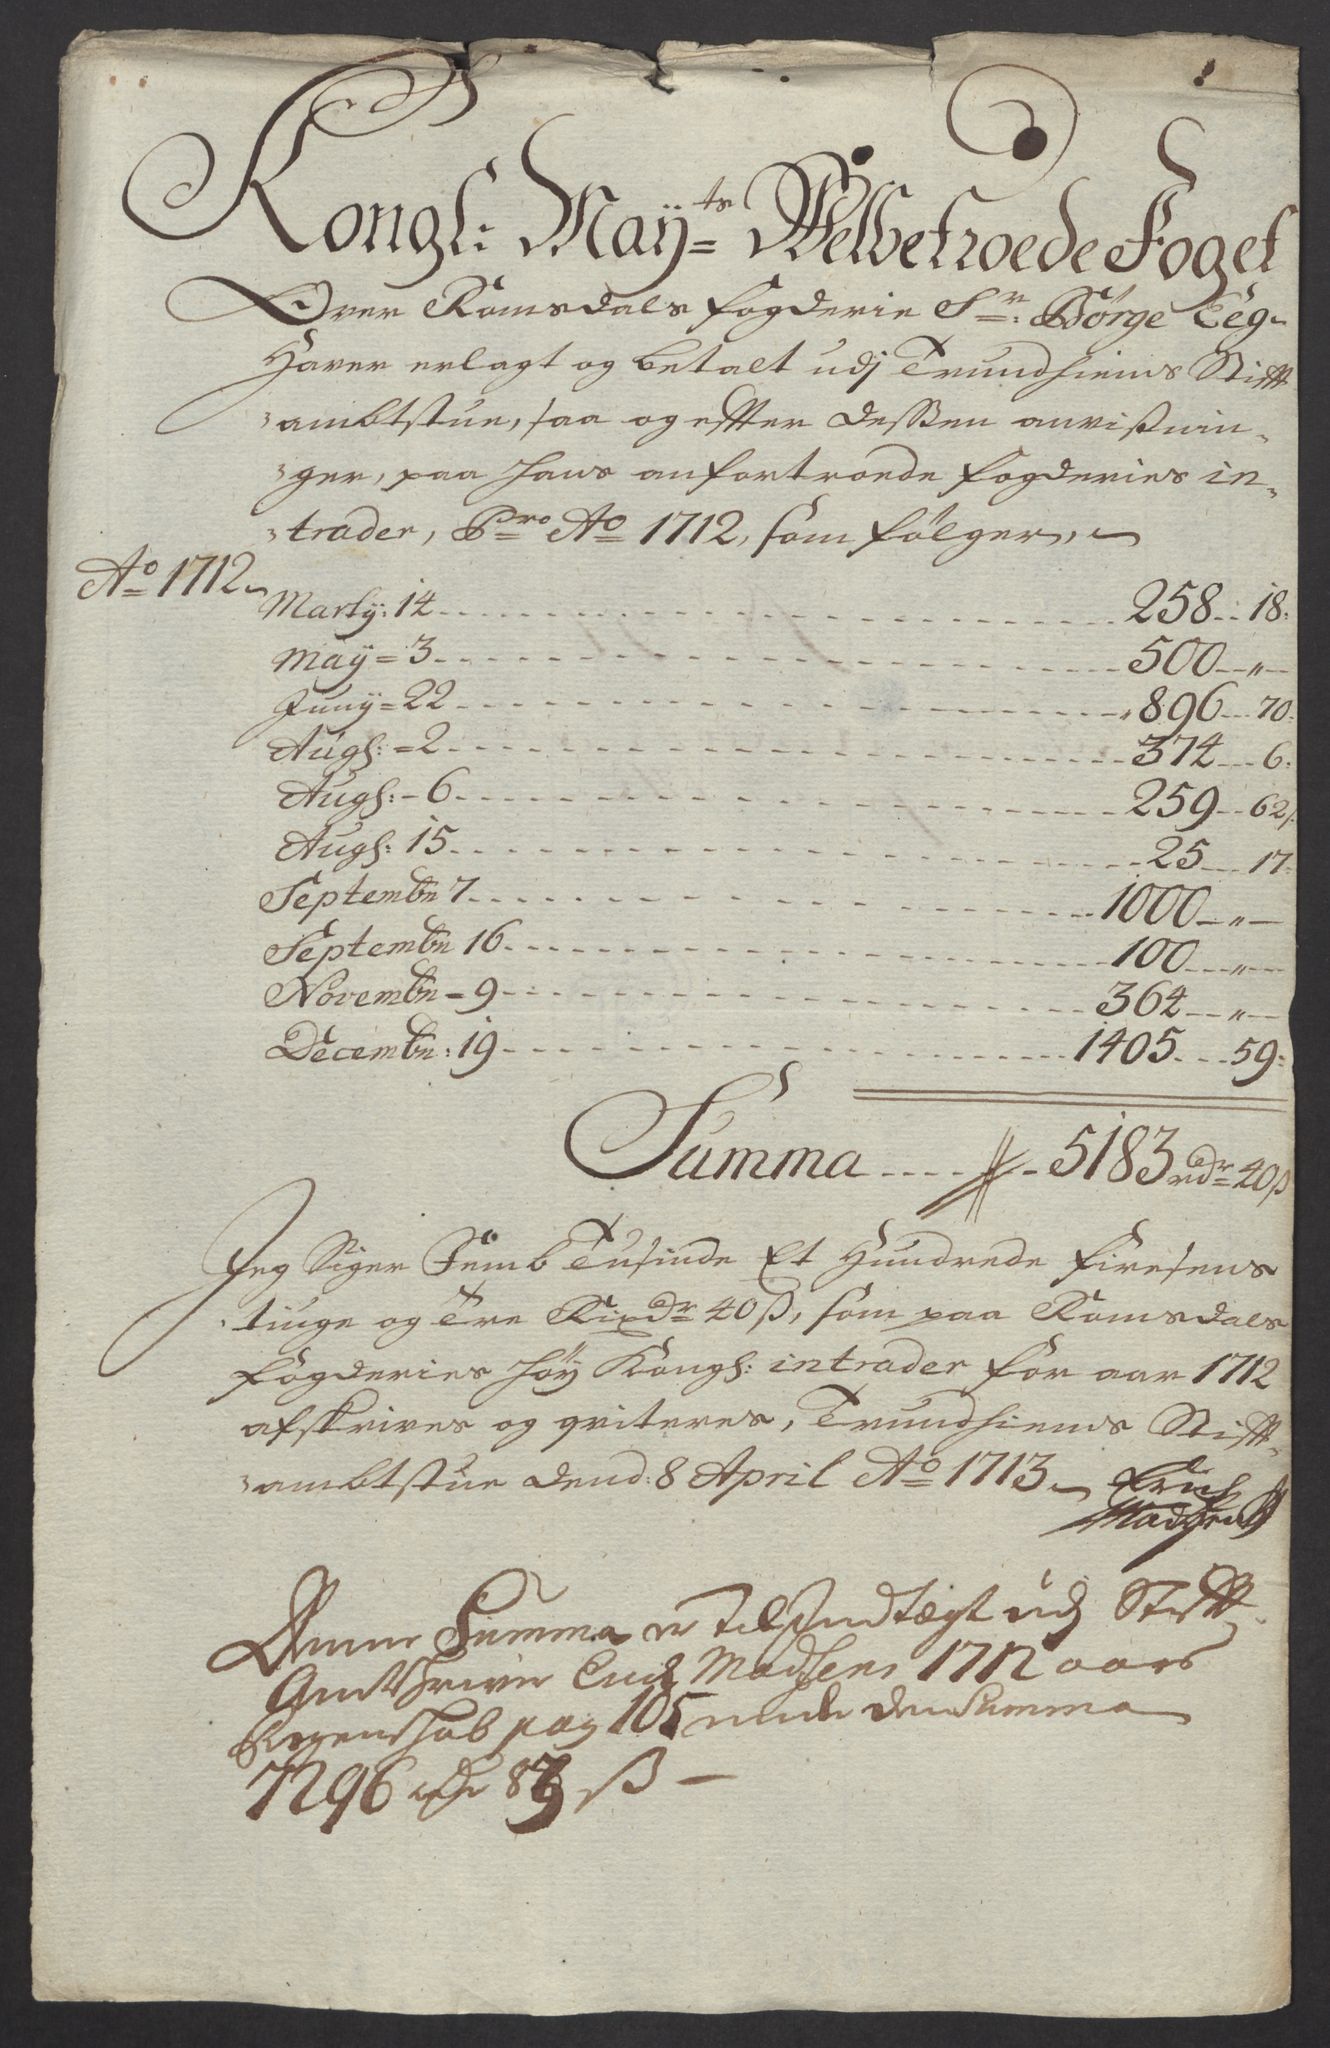 Kongl: Maÿ=ts Welbetroede Foget
Over Romsdals fogderie Sr: Børge Eeg
Haver erlagt og betalt udj Trundhiems Stifft
ambtstue, saa og effter dessen anvißnin-
ger, paa hans anfortroede fogderies in-
trader, Pro Ao 1712, som følger,
Ao 1712
Martij: 14 . . . 258 . . 18:
Maÿ = 3 . . . 500 — „ —
Junÿ = 22 . . . 896 . . 70:
Augs: = 2 . . . 374 . . 6:
Augs: - 6 . . . 259 . . 62/:
Augs: 15 . . . 25 . . 17:
Septembr 7 . . . 1000 — „ —
Septembr 16 . . . 100 — „ —
Novembr = 9 . . . 364 — „ —
Decembr: 19 . . . 1405 . . 59:
Summa . . . . 5183 rdr 40 ß
Jeg Siger Femb Tusinde Et Hundrede firesens
tiuge og Tre Rixdr 40 ß, som paa Romsdals
fogderies høÿ Kongl: intrader for aar 1712
afskrives og qviteres, Trundhiems Stifft-
ambtstue dend: 8 April Ao 1713
Erich
Madsen
Denne Summa er til Indtægt udj Stifft
Amtskriver Erich Madsens 1712 aars
Regenskab pag 105 under den Summa
7296 rdr 83 ß —